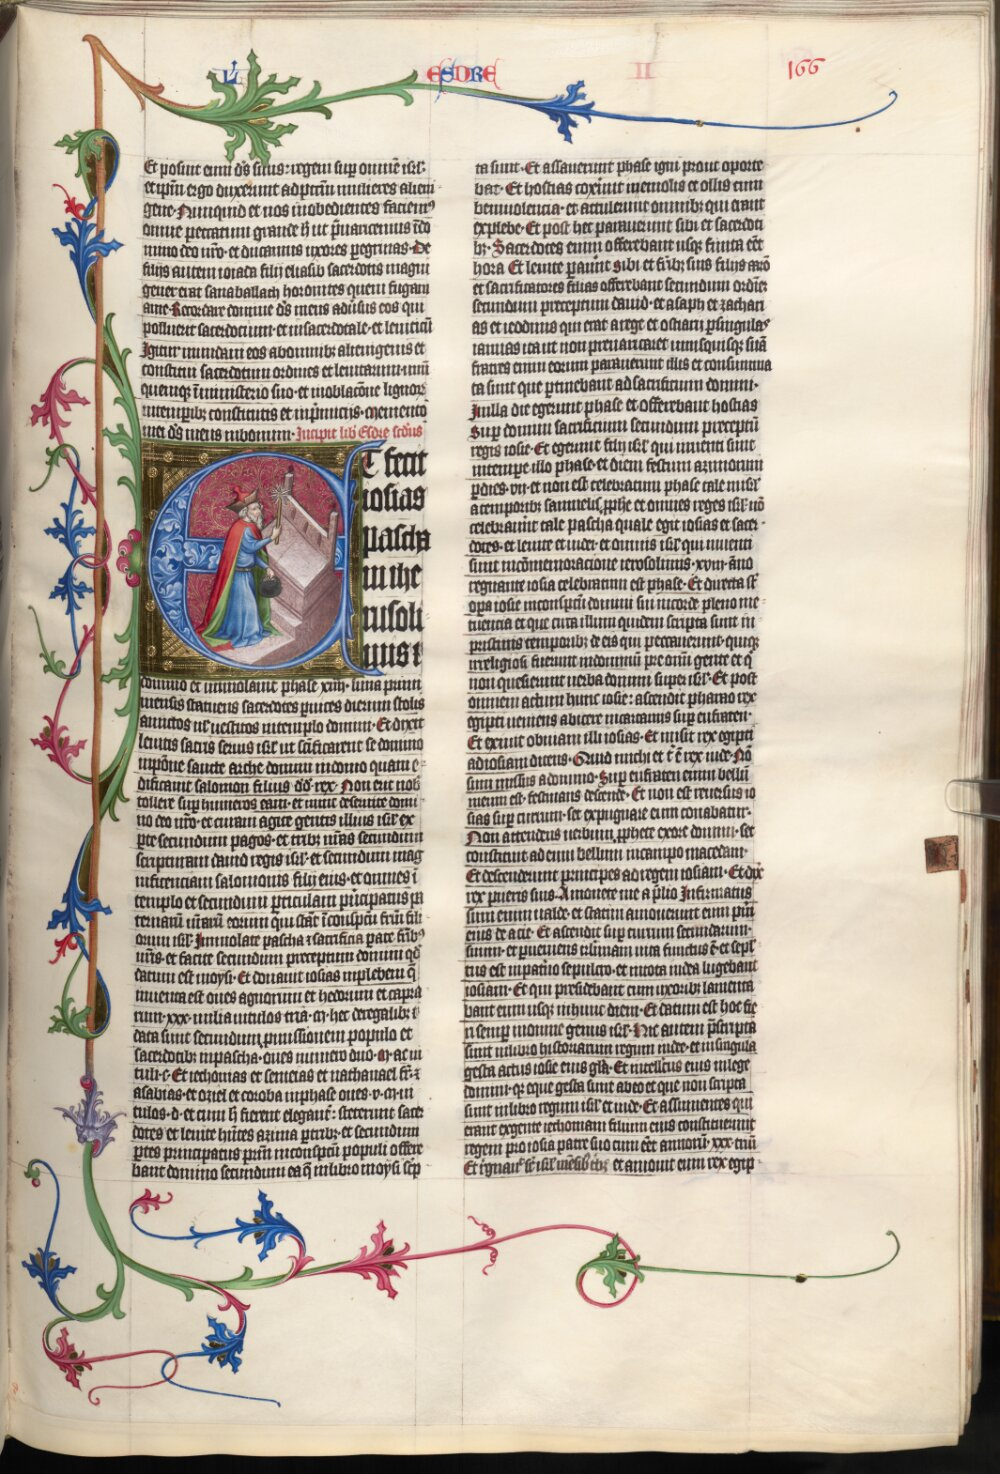 L
ESDRE
II
166
Et posuit eum ds suus regem sup omne isrl
et ipm ergo duxerunt ad pctm mulieres alieni
gene Nunquid et nos inobedientes faciemus
omne peccatum grande h ut puaricemus i do
mino deo nro et ducamus uxores pegrinas De
filijs autem ioiada filij eliasib sacerdotis magni
gener erat sanaballath horonites quem fugaui
a me Recordare domine ds meus adusus eos qui
polluerut sacerdotium et ius sacerdotale et leuiticu
Igitur mundaui eos ab omnibz alienigenis et
constitui sacerdotum ordines et leuitarum unu
quemqz i ministerio suo et in oblacone lignor
in temporibz constitutis et in primicijs Memento
mei ds meus in bonum Incipit lib Esdre scdus
ET fecit
iosias
pascha
in ihe
rusoli
mis
domino et immolauit phase xiiij luna primi
mensis statuens sacerdotes p uices dierum stolis
amictos in templo domini Et dixit
leuitis sacris seruis isrl ut scificarent se domino
in posicone sancte arche domini in domo quam e
dificauit salomon filius dd rex Non erit uob
tollere sup humeros eam et nunc deseruite domi
no deo uro et curam agite gentis illius isrl ex
pte secundum pagos et tribz uras secundum
scripturam dauid regis isrl et secundum mag
nificenciam salomonis filij eius et omnes i
templo et secundum particulam principatus pa
ternaru urarum eorum qui stat i conspectu frum fili
orum isrl Immolate pascha et sacrificia parate fribz
uris et facite secundum preceptum domini qd
datum est moysi Et donauit iosias in plebem q
inuenta est oues agnorum et hedorum et capra
rum xxx milia uitulos tria m hec de regalibz
data sunt secundum pmissionem populo et
sacerdotibz in pascha oues numero duo m ac ui
tuli c Et iechonias et semeias et nathanael fr
asabias et oziel et coroba in phase oues v m ui
tulos d et cum h fierent eleganter steterunt sacer
dotes et leuite hntes azima p tribz et secundum
ptes principatus prum in conspectu populi offere
bant domino secundum ea q in libro moysi scp
ta sunt Et assauerunt phase igni prout oporte
bat Et hostias coxerunt in emolis et ollis cum
beniuolencia et attulerunt omnibz qui erant
ex plebe Et post hec parauerunt sibi et sacerdoti
bz Sacerdotes enim offerebant usqz finita eet
hora Et leuite parauerunt sibi et fribz suis filijs aaron
et sacrificatores filias offerebant secundum ordine
secundum preceptum dauid et asaph et zachari
as et ieddimus qui erat a rege et ostiarij p singulas
ianuas ita ut non preuaricaret unusquisqz sua
fratres enim eorum parauerunt illis et consumma
ta sunt que ptinebant ad sacrificium domini
In illa die egerunt phase et offerebant hostias
sup domini sacrificium secundum preceptu
regis iosie Et egerunt filij isrl qui inuenti sunt
in tempore illo phase et diem festum azimorum
p dies vij et non est celebratum phase tale in isrl
a temporibz samuelis pphe et omnes reges isrl no
celebrarunt tale pascha quale egit iosias et sacer
dotes et leuite et iudei et omnis isrl qui inuenti
sunt in comemoracione ierosolimis xviij ano
regnante iosia celebratum est phase Et directa st
opa iosie in conspectu domini sui in corde pleno me
tuencia et que circa illum quidem scripta sunt in
pristinis temporibz de eis qui peccauerunt quiqz
irreligiosi fuerunt in dominum pre omni gente et q
non quesierunt uerba domini super isrl Et post
omnem actum hunc iosie ascendit pharao rex
egipti ueniens abicere in carcamis sup eufraten
Et exiuit obuiam illi iosias Et misit rex egipti
ad iosiam dicens Quid michi et t e rex iude No
sum missus a domino Sup eufraten enim bellu
meum est festinans descende Et non est reuersus io
sias sup currum set expugnare eum conabatur
Non attendens uerbum pphete ex ore domini set
constituit ad eum bellum in campo macedani
Et descenderunt principes ad regem iosiam Et dix
rex pueris suis Amouete me a plio Infirmatus
sum enim ualde et statim amouerunt eum pueri
eius de acie Et ascendit sup currum secundarium
suum et pueniens ierosolimam uita functus e et sepl
tus est in patrio sepulcro et in tota iudea lugebant
iosiam Et qui presidebant cum uxoribz lamenta
bant eum usqz in hunc diem Et datum est hoc fie
ri semp in omne genus isrl Hec autem pscripta
sunt in libro historiarum regum iude et in singula
gesta actus iosie eius gla Et intellectus eius in lege
domini qz eque gesta sunt ab eo et que non scripta
sunt in libro regum isrl et iude Et assumentes qui
erant ex gente iechoniam filium eius constituerunt
regem pro iosia patre suo cum eet annorum xxx triu
Et regnauit sr isrl mesibz tribz et amouit eum rex egip